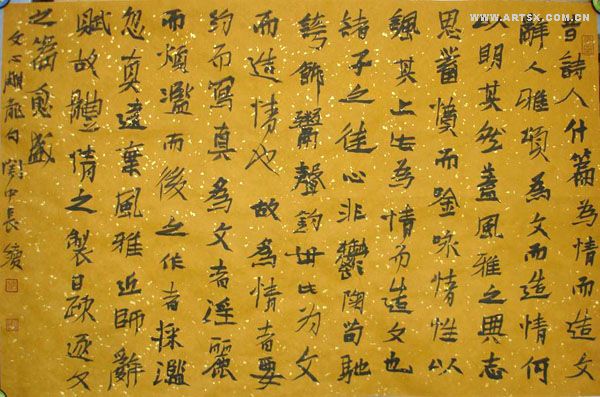 WWW.ARTSX.COM.CN
昔詩人什篇為情而造文
辭人雅頌為文而造情何
以明其然蓋風雅之興志
思蓄憤而唫咏情性以
諷其上此為情而造文也
諸子之徒心非鬱陶苟馳
誇飾鬻聲釣世此為文
而造情也故為情者要
約而寫真為文者淫麗
而煩濫而後之作者採濫
忽真遠棄風雅近師辭
賦故體情之製日疏逐文
之篇愈盛
文心雕龍句劉中長